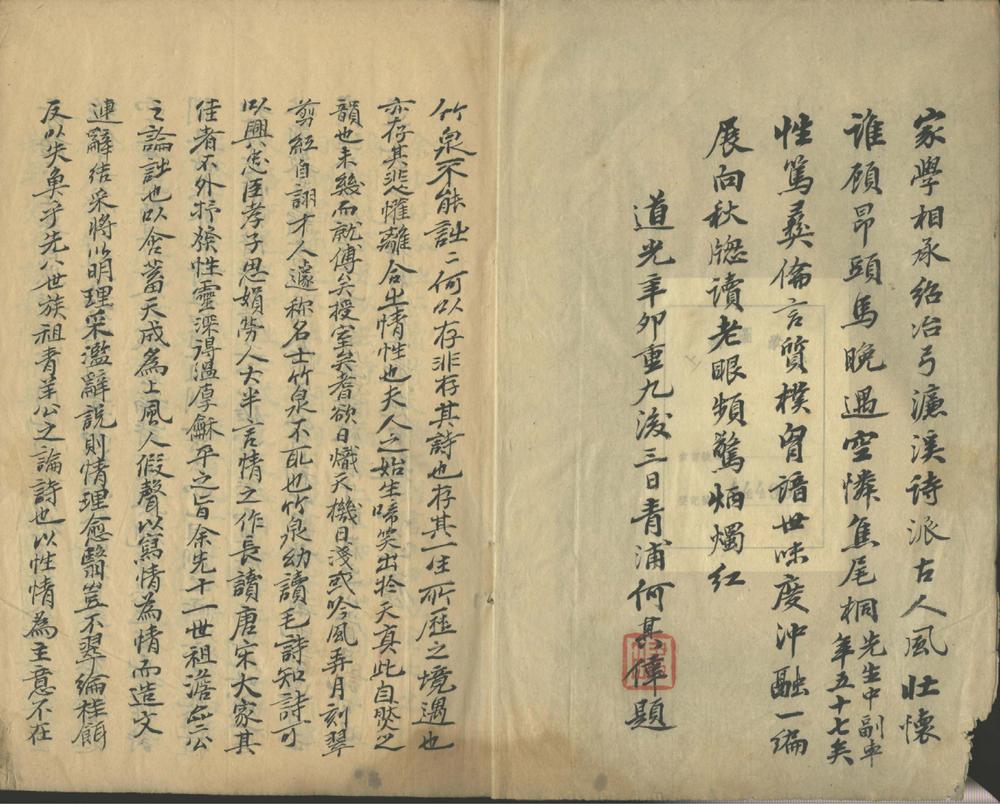 家學相承紹冶弓濂溪詩派古人風壯懷
誰顧昂頭馬晚遇空憐焦尾桐先生中副車年五十七矣
性篤彝倫言質樸胷諳世味度沖融一編
展向秋牕讀老眼頻驚炳燭紅
道光辛卯重九後三日青浦何其偉題
竹泉不能詩詩何以存非存其詩也存其一生所歷之境遇也
亦存其悲懽離合出情性也夫人之始生啼笑出於天真此自然之
韻也未幾而就傅矣授室矣耆欲日熾天機日淺或吟風弄月刻翠
剪紅自詡才人遽称名士竹泉不耻也竹泉幼讀毛詩知詩可
以興忠臣孝子思婦勞人大半言情之作長讀唐宋大家其
佳者不外抒寫性靈深得溫厚龢平之旨余先十一世祖澹公
之論詩也以含蓄天成為上風人假聲以寫情為情而造文
連辭结采將以明理采濫辭詭則情理愈翳豈不翠綸桂餌
反以失魚乎先八世族祖青羊公之論詩也以性情為主意不在